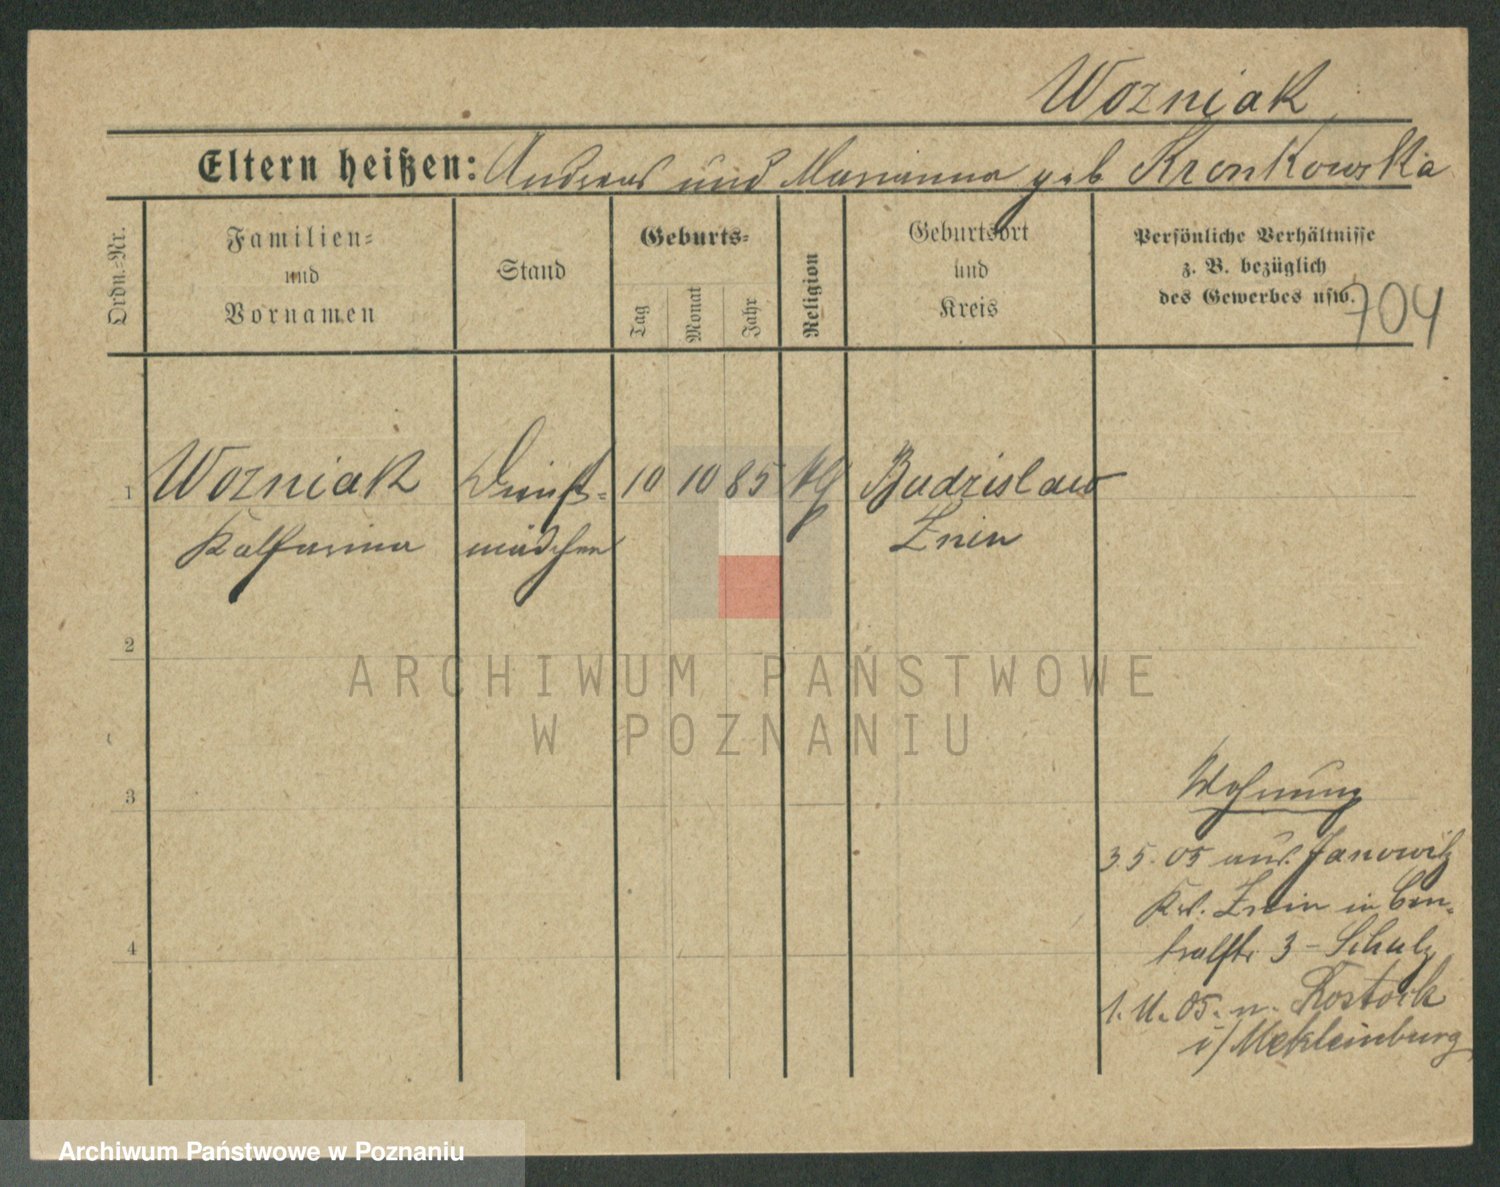 Wozniak
Eltern heißen: Andreas und Marianna geb Kronkowska
Ordn.-Nr.
Familien-
und
Vornamen
Stand
Geburts-
Tag
Monat
Jahr
Religion
Geburtsort
und
Kreis
Persönliche Verhältnisse
z. B. bezüglich
des Gewerbes usw.
704
1 Wozniak Dienst- 10 10 85 Budzislaw
Katharina mädchen Znin
2
3
4
Wohnung
3.5.05 aus Janowitz
Kr. Znin in Cen-
tralstr. 3 - Schulz
1.11.05. n. Rostock
i/Mekleinburg
ARCHIWUM PAŃSTWOWE
W POZNANIU
Archiwum Państwowe w Poznaniu